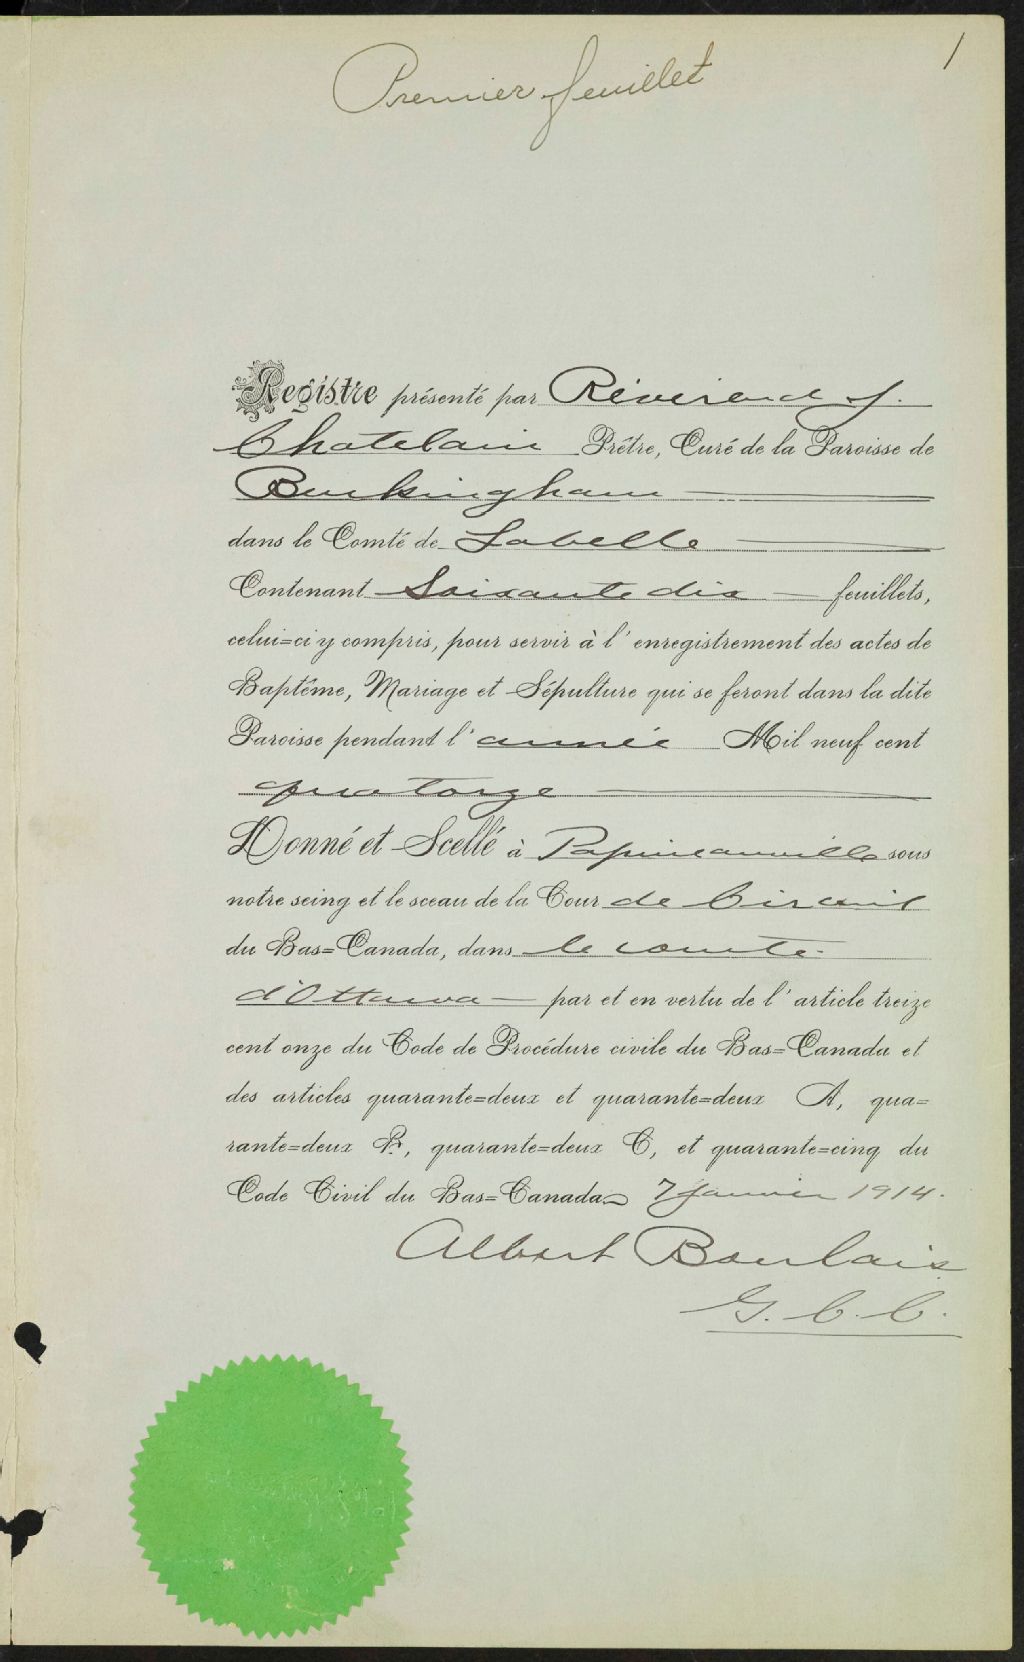 1
Premier feuillet
Registre présenté par Révérend J.
Chatelain Prêtre, Curé de la Paroisse de
Buckingham
dans le Comté de Labelle
Contenant Soixante dix feuillets,
celui=ci y compris, pour servir à l'enregistrement des actes de
Baptême, Mariage et Sépulture qui se feront dans la dite
Paroisse pendant l'année Mil neuf cent
quatorze
Donné et Scellé à Papineauville sous
notre seing et le sceau de la Cour de Circuit
du Bas=Canada, dans le comté
d'Ottawa par et en vertu de l'article treize
cent onze du Code de Procédure civile du Bas=Canada et
des articles quarante=deux et quarante=deux A, qua=
rante=deux B, quarante=deux C, et quarante=cinq du
Code Civil du Bas=Canada 7 Janvier 1914.
Albert Boulais
G. C. C.